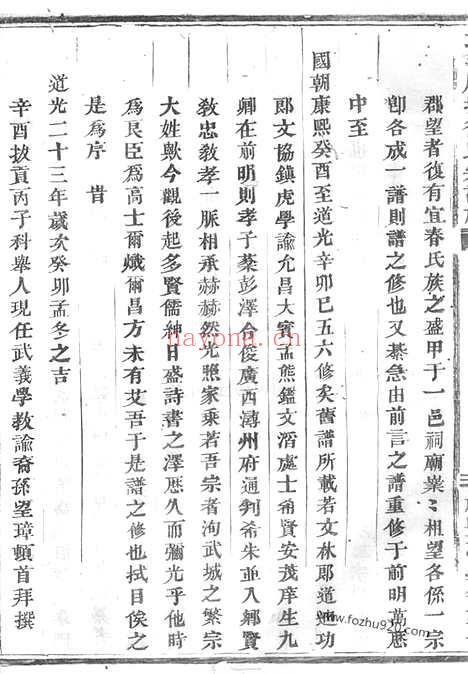 郡望者復有宜春氏族之盛甲于一邑祠廟業〻相望各係一宗
卽各成一譜則譜之修也又綦急由前言之譜重修于前明萬應
中至
國朝康熙癸酉至道光辛卯巳五六修矣舊譜所載若文林郎道通功
郎文協鎮虎學諭允昌大賓孟熊鑑文滔處士希賢安茂庠生九
卿在前明則孝子棻彭澤令俊廣西潯州府通判希朱並入鄉賢
敎忠敎孝一脈相承赫赫然光照家乗若吾宗者洵武城之繁宗
大姓歟今觀後起多賢儒紳日盛詩書之澤歷久而彌光乎他時
爲良臣爲高士爾熾爾昌方未有艾吾于是譜之修也拭目俟之
是爲序 旹
道光二十三年歲次癸卯孟冬之吉
辛酉拔貢丙子科舉人現任武義學敎諭裔孫望璋頓首拜撰
nayona.cn
www.fozhu920.com